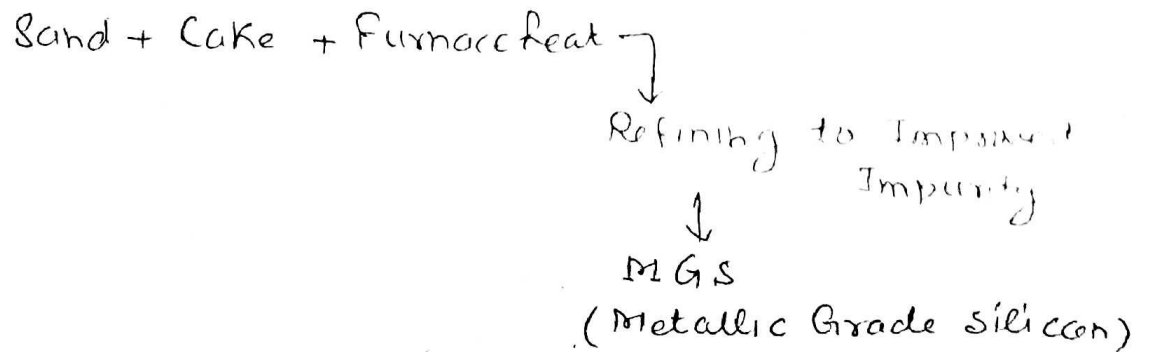 Sand + Cake + Furnace heat
Refining to
Impurity
MGS
(Metallic Grade Silicon)